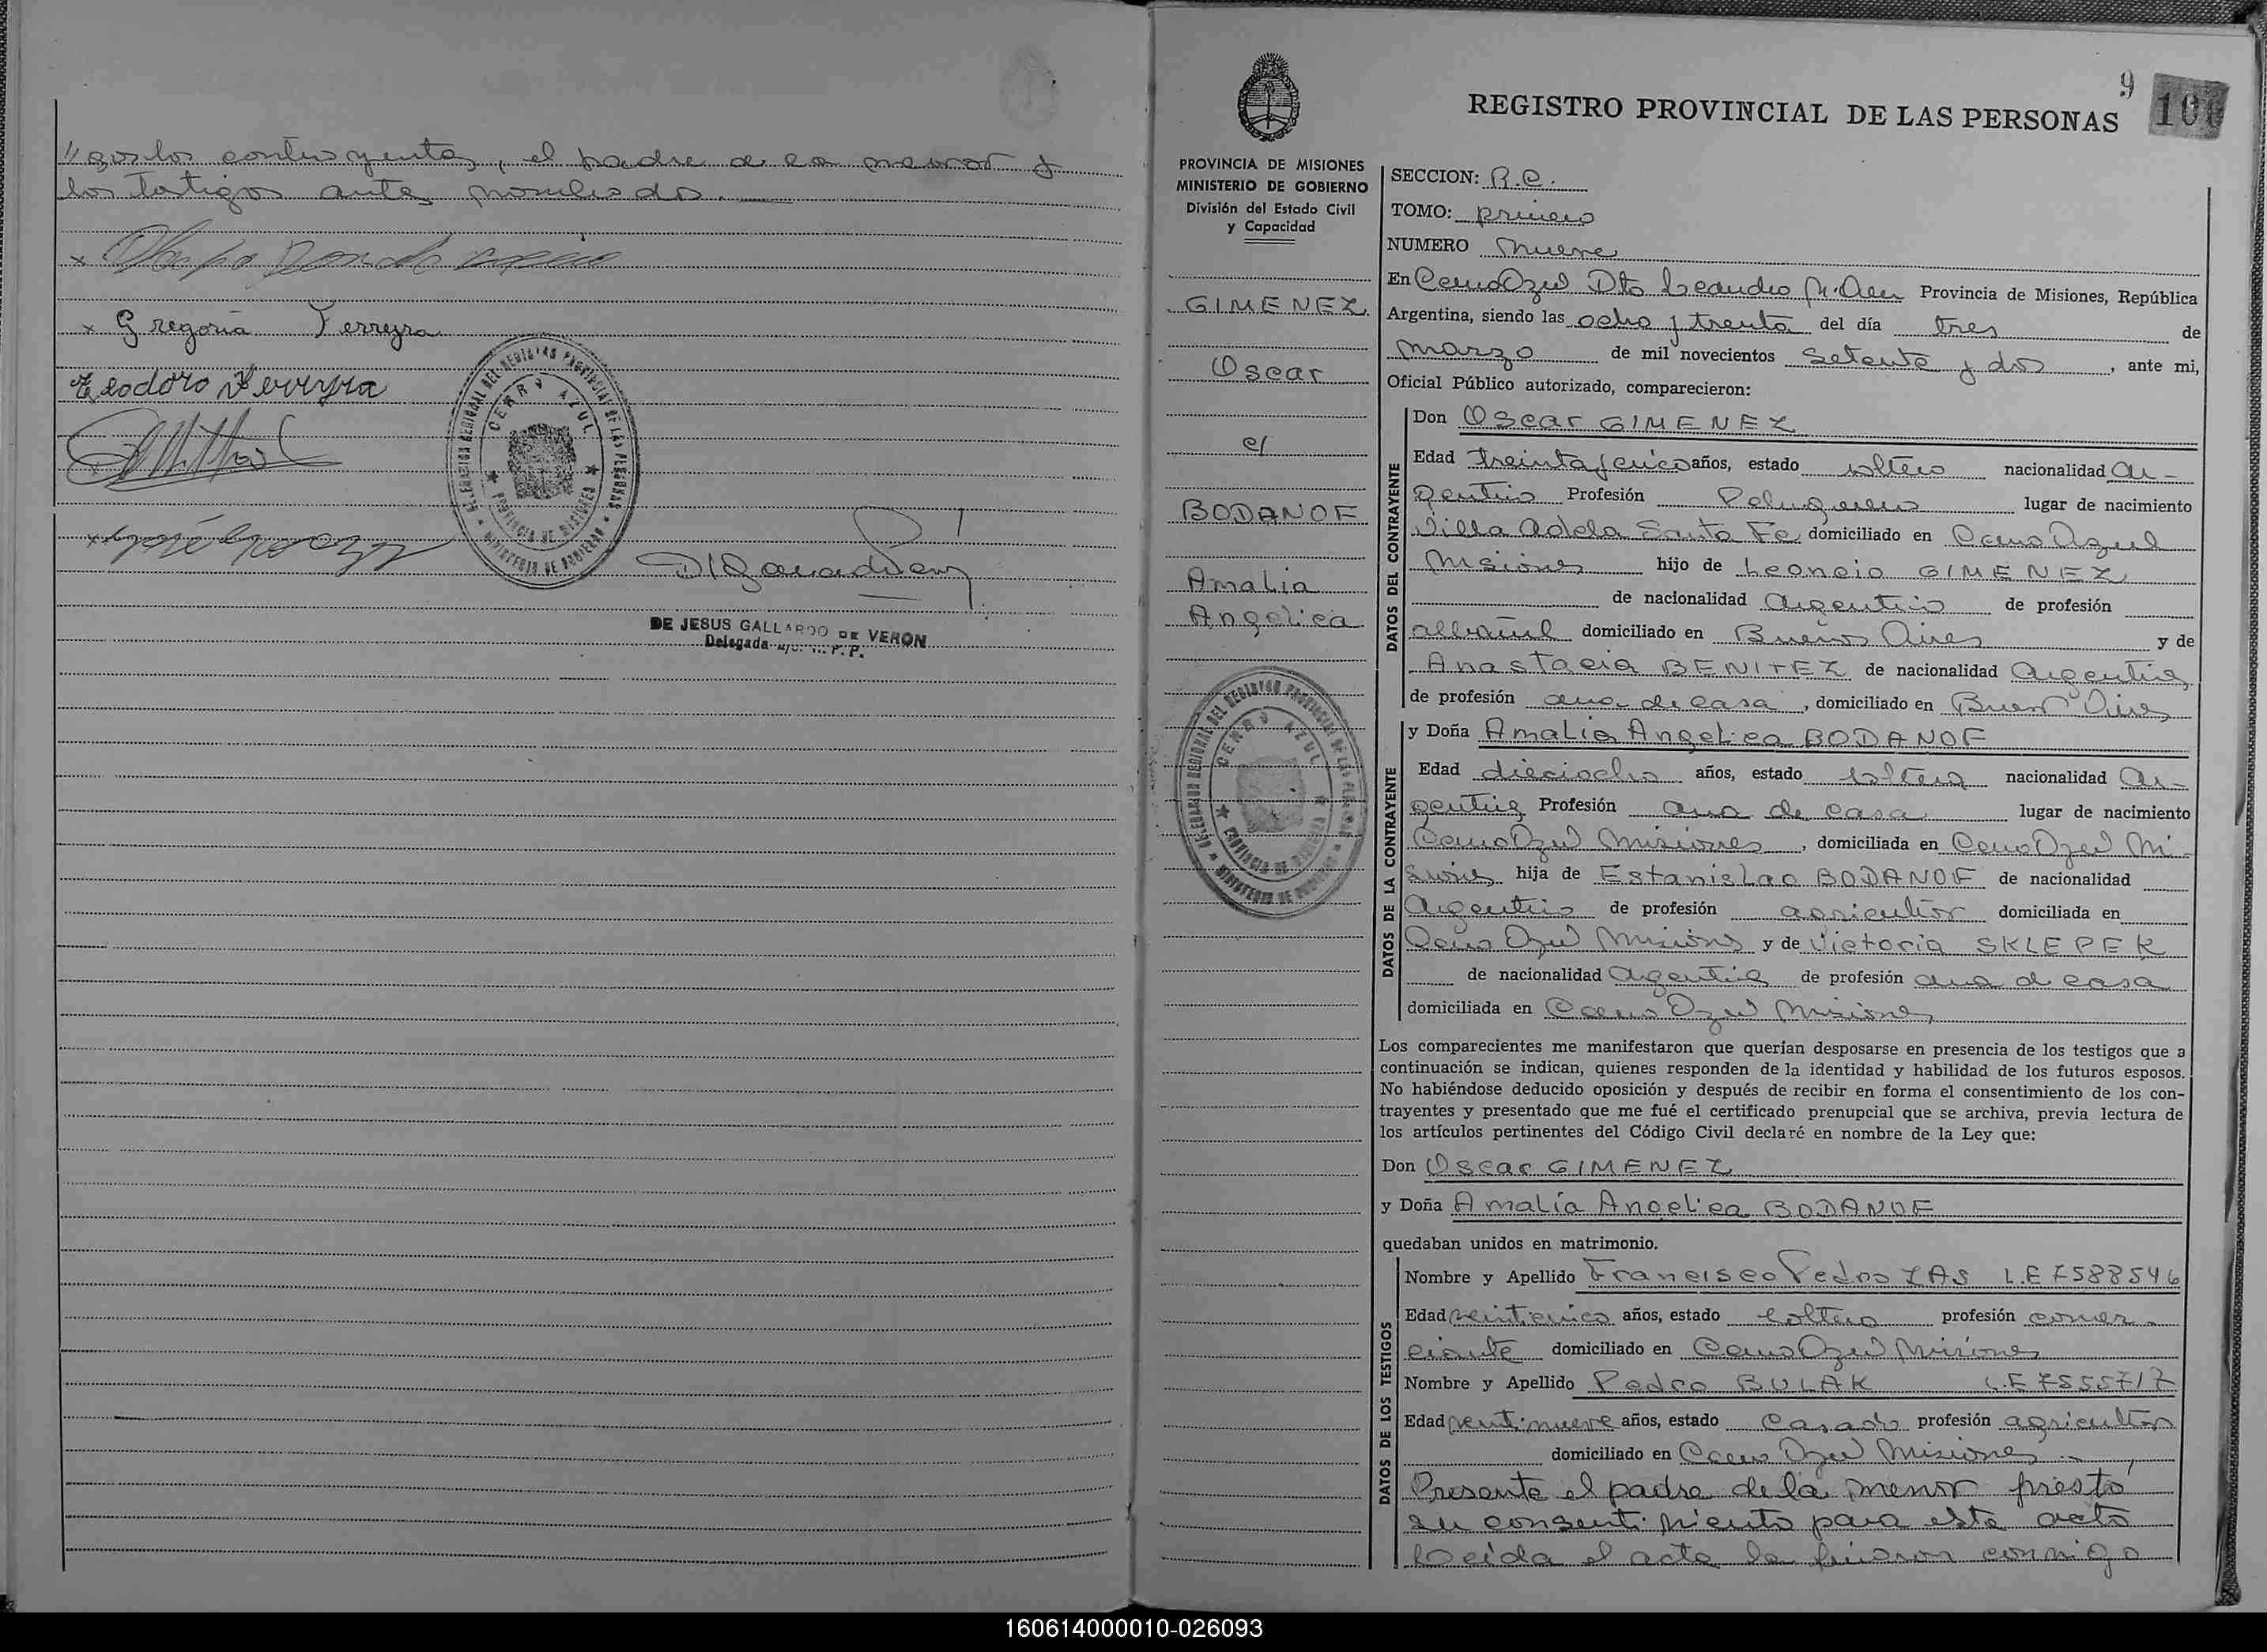 "gos los contrayentes, el padre de la menor y
los testigos antes nombrados.
x
x Gregoria Ferreyra
Teodoro Ferreyra
DELEGACION REGIONAL DEL REGISTRO PROVINCIAL DE LAS PERSONAS
CERRO AZUL
PROVINCIA DE MISIONES
MINISTERIO DE GOBIERNO
DE JESUS GALLARDO DE VERON
Delegada R.P.P.
9
100
REGISTRO PROVINCIAL DE LAS PERSONAS
PROVINCIA DE MISIONES
MINISTERIO DE GOBIERNO
División del Estado Civil
y Capacidad
GIMENEZ
Oscar
c/
BODANOF
Amalia
Angelica
DELEGACION REGIONAL DEL REGISTRO PROVINCIAL DE LAS PERSONAS
CERRO AZUL
PROVINCIA DE MISIONES
MINISTERIO DE GOBIERNO
SECCION: R.C.
TOMO: primero
NUMERO nueve
En Cerro Azul Dto Leandro N. Alem Provincia de Misiones, República
Argentina, siendo las ocho y treinta del día tres de
marzo de mil novecientos setenta y dos, ante mi,
Oficial Público autorizado, comparecieron:
DATOS DEL CONTRAYENTE
Don Oscar GIMENEZ
Edad treinta y cinco años, estado soltero nacionalidad ar-
gentino Profesión Peluquero lugar de nacimiento
Villa Adela Santa Fe domiciliado en Cerro Azul
Misiones hijo de Leoncio GIMENEZ
de nacionalidad Argentino de profesión
albañil domiciliado en Buenos Aires y de
Anastacia BENITEZ de nacionalidad Argentina,
de profesión ama de casa, domiciliado en Buenos Aires
DATOS DE LA CONTRAYENTE
y Doña Amalia Angelica BODANOF
Edad dieciocho años, estado soltera nacionalidad Ar-
gentina Profesión ama de casa lugar de nacimiento
Cerro Azul Misiones, domiciliada en Cerro Azul Mi
siones hija de Estanislao BODANOF de nacionalidad
Argentino de profesión agricultor domiciliada en
Cerro Azul Misiones y de Victoria SKLEPEK
de nacionalidad Argentina de profesión ama de casa
domiciliada en Cerro Azul Misiones
Los comparecientes me manifestaron que querían desposarse en presencia de los testigos que a
continuación se indican, quienes responden de la identidad y habilidad de los futuros esposos.
No habiéndose deducido oposición y después de recibir en forma el consentimiento de los con-
trayentes y presentado que me fué el certificado prenupcial que se archiva, previa lectura de
los artículos pertinentes del Código Civil declaré en nombre de la Ley que:
Don Oscar GIMENEZ
y Doña Amalia Angelica BODANOF
quedaban unidos en matrimonio.
DATOS DE LOS TESTIGOS
Nombre y Apellido Francisco Pedro ZAS L.E 7588546
Edad veinticinco años, estado soltero profesión comer-
ciante domiciliado en Cerro Azul Misiones
Nombre y Apellido Pedro BULAK L.E 7555717
Edad veintinueve años, estado casado profesión agricultor
domiciliado en Cerro Azul Misiones
Presente el padre de la menor prestó
su consentimiento para este acto
Leida el acta la firmaron conmigo
160614000010-026093